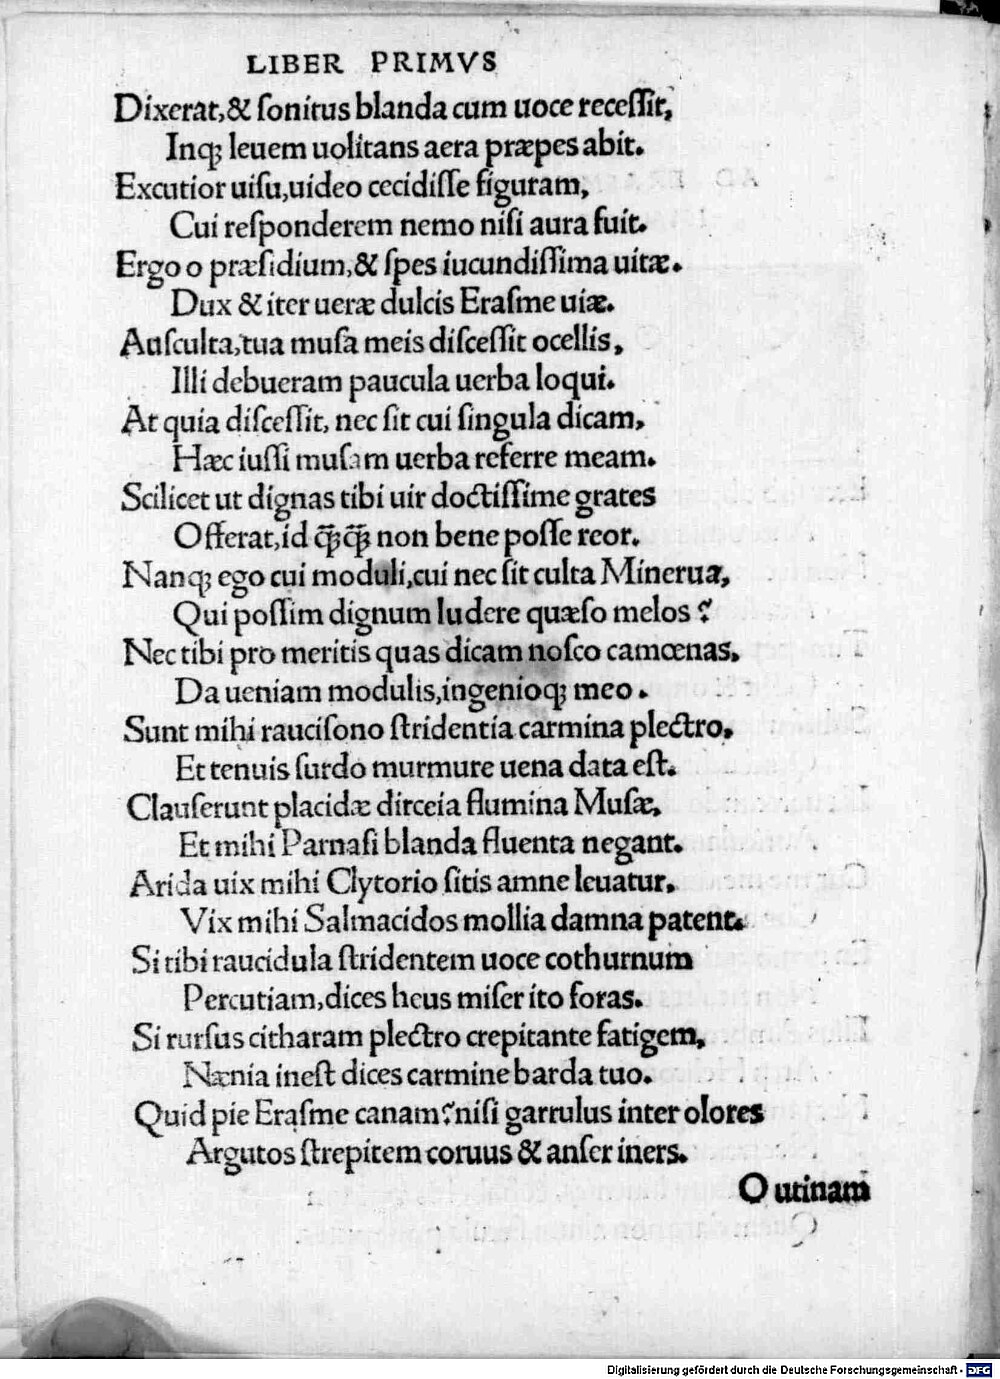 LIBER PRIMVS
Dixerat,& ſonitus blanda cum uoce receſſit,
Inq; leuem uolitans aera præpes abit.
Excutior uiſu,uideo cecidiſſe figuram,
Cui reſponderem nemo niſi aura fuit.
Ergo o præſidium,& ſpes iucundiſſima uitæ.
Dux & iter ueræ dulcis Eraſme uiæ.
Auſculta,tua muſa meis diſceſſit ocellis,
Illi debueram paucula uerba loqui.
At quia diſceſſit, nec ſit cui ſingula dicam,
Hæc iuſſi muſam uerba referre meam.
Scilicet ut dignas tibi uir doctiſſime grates
Offerat,id q̃q̃ non bene poſſe reor.
Nanq; ego cui moduli,cui nec ſit culta Minerua,
Qui poſſim dignum ludere quæſo melos ?
Nec tibi pro meritis quas dicam noſco camœnas.
Da ueniam modulis,ingenioq; meo.
Sunt mihi rauciſono ſtridentia carmina plectro,
Et tenuis ſurdo murmure uena data eſt.
Clauſerunt placidæ dirceia flumina Muſæ,
Et mihi Parnaſi blanda fluenta negant.
Arida uix mihi Clytorio ſitis amne leuatur,
Vix mihi Salmacidos mollia damna patent.
Si tibi raucidula ſtridentem uoce cothurnum
Percutiam,dices heus miſer ito foras.
Si rurſus citharam plectro crepitante fatigem,
Nænia ineſt dices carmine barda tuo.
Quid pie Eraſme canam?niſi garrulus inter olores
Argutos ſtrepitem coruus & anſer iners.
O utinam
Digitalisierung gefördert durch die Deutsche Forschungsgemeinschaft - DFG